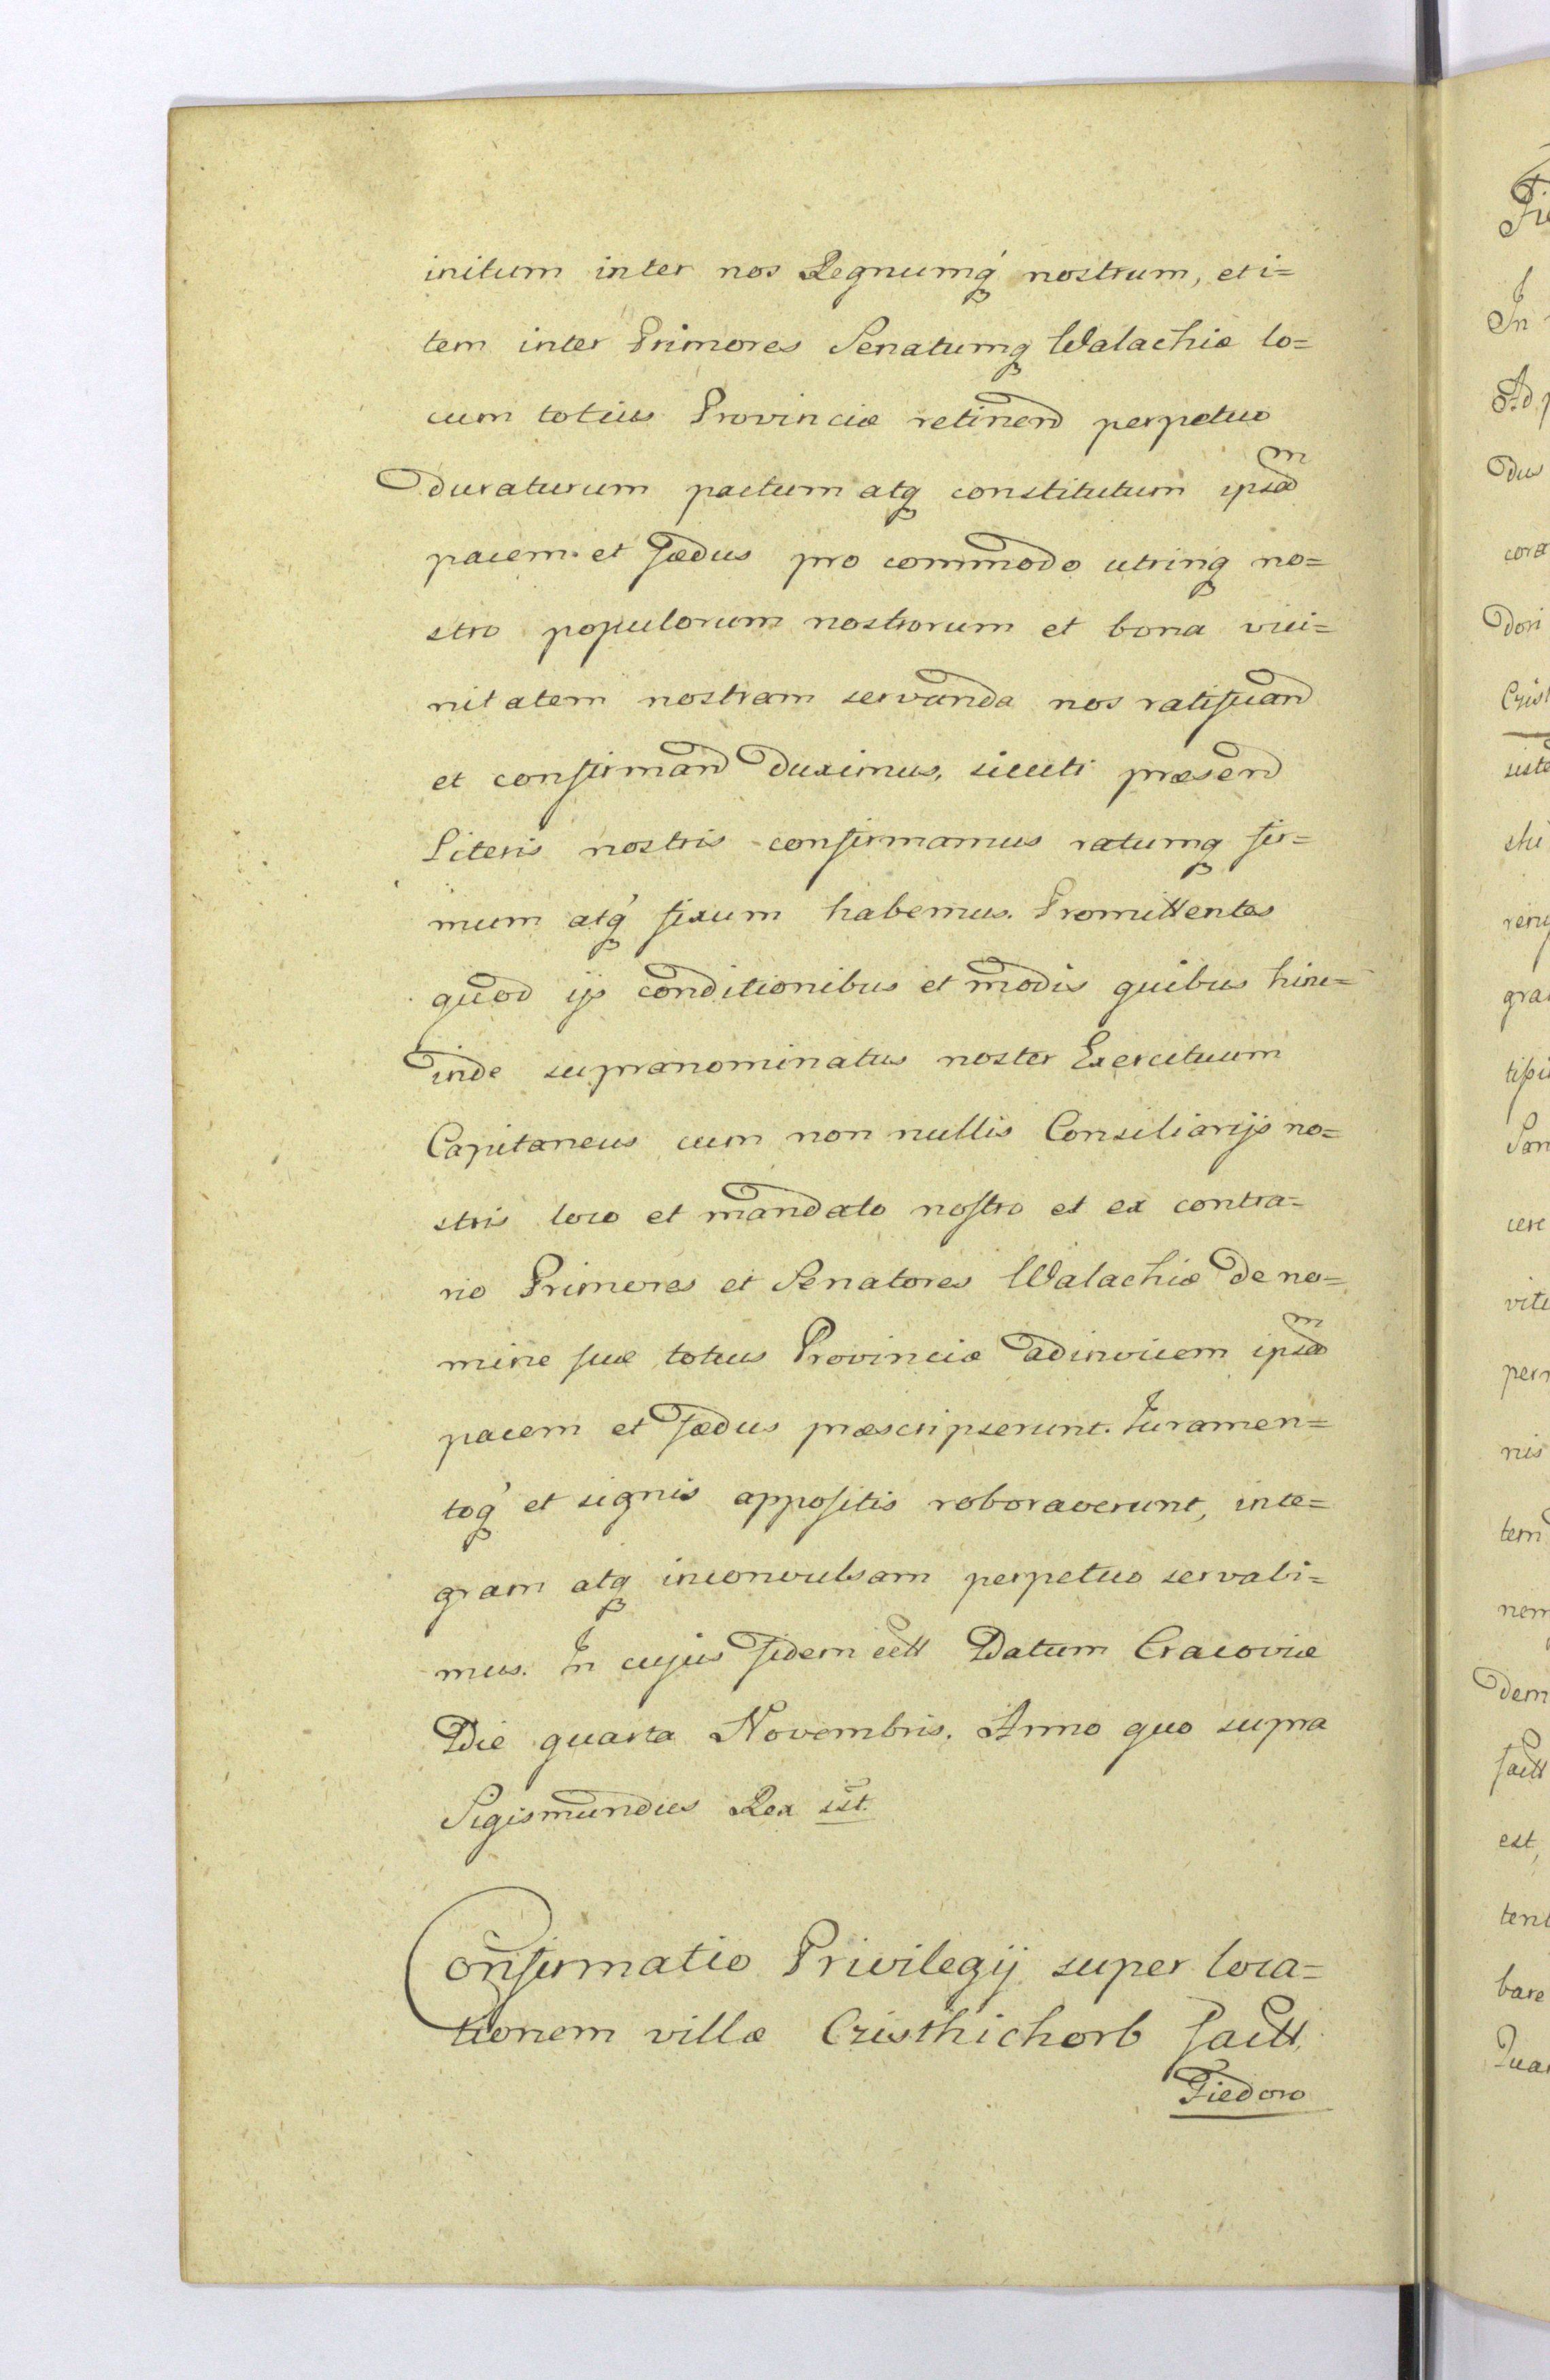 initum inter nos Regnumq́ nostrum, et i=
tem inter Primores Senatumq Walachiæ lo=
cum totius Provinciæ retinend perpetuo
duraturum pactum atq constitutum ipsam
pacem et fædus pro commodo utrinq no=
stro populorum nostrorum et bona vici=
nitatem nostram servanda nos ratificand
et confirmand duximus, sicuti præsend
Literis nostris confirmamus ratumq fir=
mum atq́ fixum habemus. Promittentes
quod ijs conditionibus et modis quibus hinc=
inde supranominatus noster Exercituum
Capitaneus cum non nullis Consiliarijs no=
stris loco et mandato nostro et ex contra=
rio Primores et Senatores Walachiæ de no=
mine suæ totius Provinciæ adinvicem ipsam
pacem et fædus præscripserunt. Juramen=
toq́ et signis appositis roboraverunt, inte=
gram atq inconvulsam perpetuo servabi=
mus. In cujus fidem ectt Datum Cracoviæ
Die quarta Novembris. Anno quo supra
Sigismundus Rex sst.
Confirmatio Privilegij super loca=
tionem villæ Cristhichorb factt.
Fiedoro